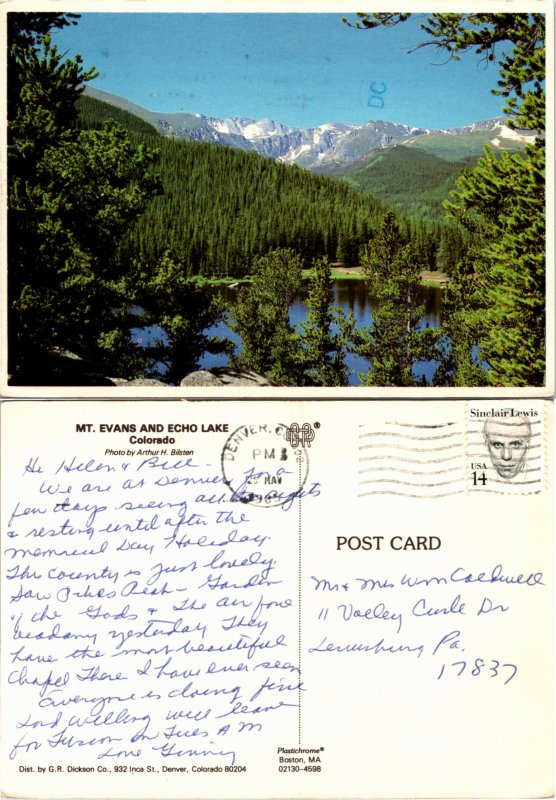 DC
MT. EVANS AND ECHO LAKE
Colorado
Photo by Arthur H. Bilsten
Hi Helen & Bill -
We are at Denver for a
few days seeing all the sights
& resting until after the
Memorial Day Holiday.
This country is just lovely.
Saw Pikes Peak - Garden
of the Gods & The air force
academy yesterday They
have the most beautiful
Chapel There I have ever seen
Everyone is doing fine
Lord willing will leave
for on Tues A M
Love Ginny
Dist. by G.R. Dickson Co., 932 Inca St., Denver, Colorado 80204
DENVER, CO
PM
MAY
CP ®
Plastichrome®
Boston, MA
02130-4598
Sinclair Lewis
USA
14
POST CARD
Mr & Mrs Wm Caldwell
11 Valley Circle Dr
Lewisburg Pa.
17837